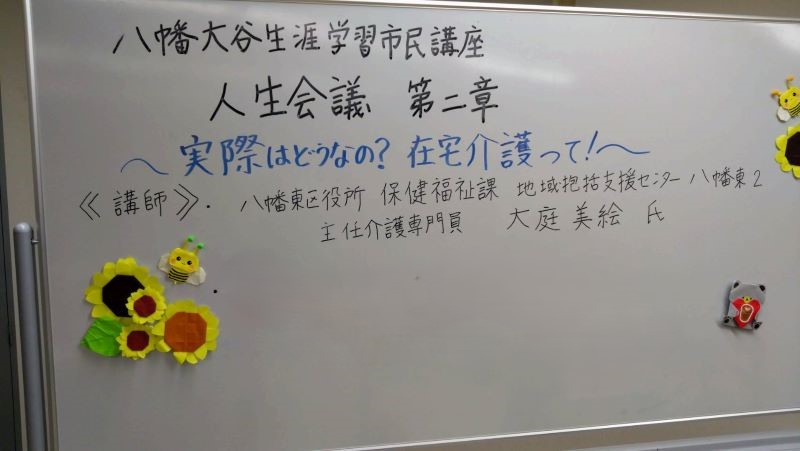 八幡大谷生涯学習市民講座
人生会議 第二章
～実際はどうなの？在宅介護って！～
《講師》・八幡東区役所 保健福祉課 地域抱括支援センター八幡東2
主任介護専門員 大庭美絵 氏